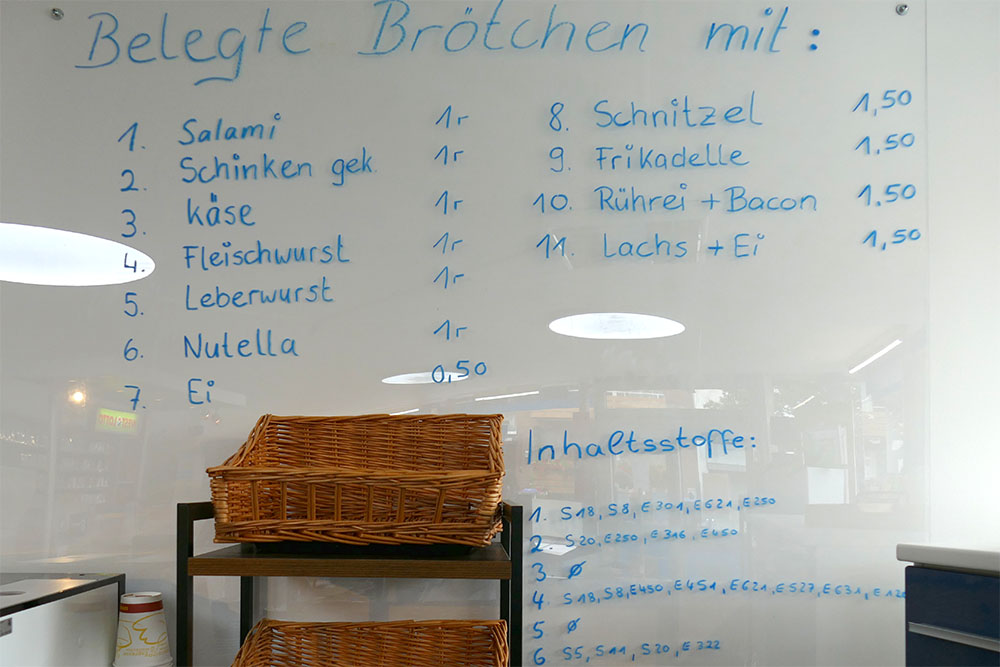 Belegte Brötchen mit:
1. Salami 1,-
2. Schinken gek. 1,-
3. Käse 1,-
4. Fleischwurst 1,-
5. Leberwurst 1,-
6. Nutella 1,-
7. Ei 0,50
8. Schnitzel 1,50
9. Frikadelle 1,50
10. Rührei + Bacon 1,50
11. Lachs + Ei 1,50
Inhaltsstoffe:
1. S18, S8, E301, E621, E250
2. S20, E250, E316, E450
3. ø
4. S18, S8, E450, E451, E621, E527, E631,
5. ø
6. S5, S11, S20, E322